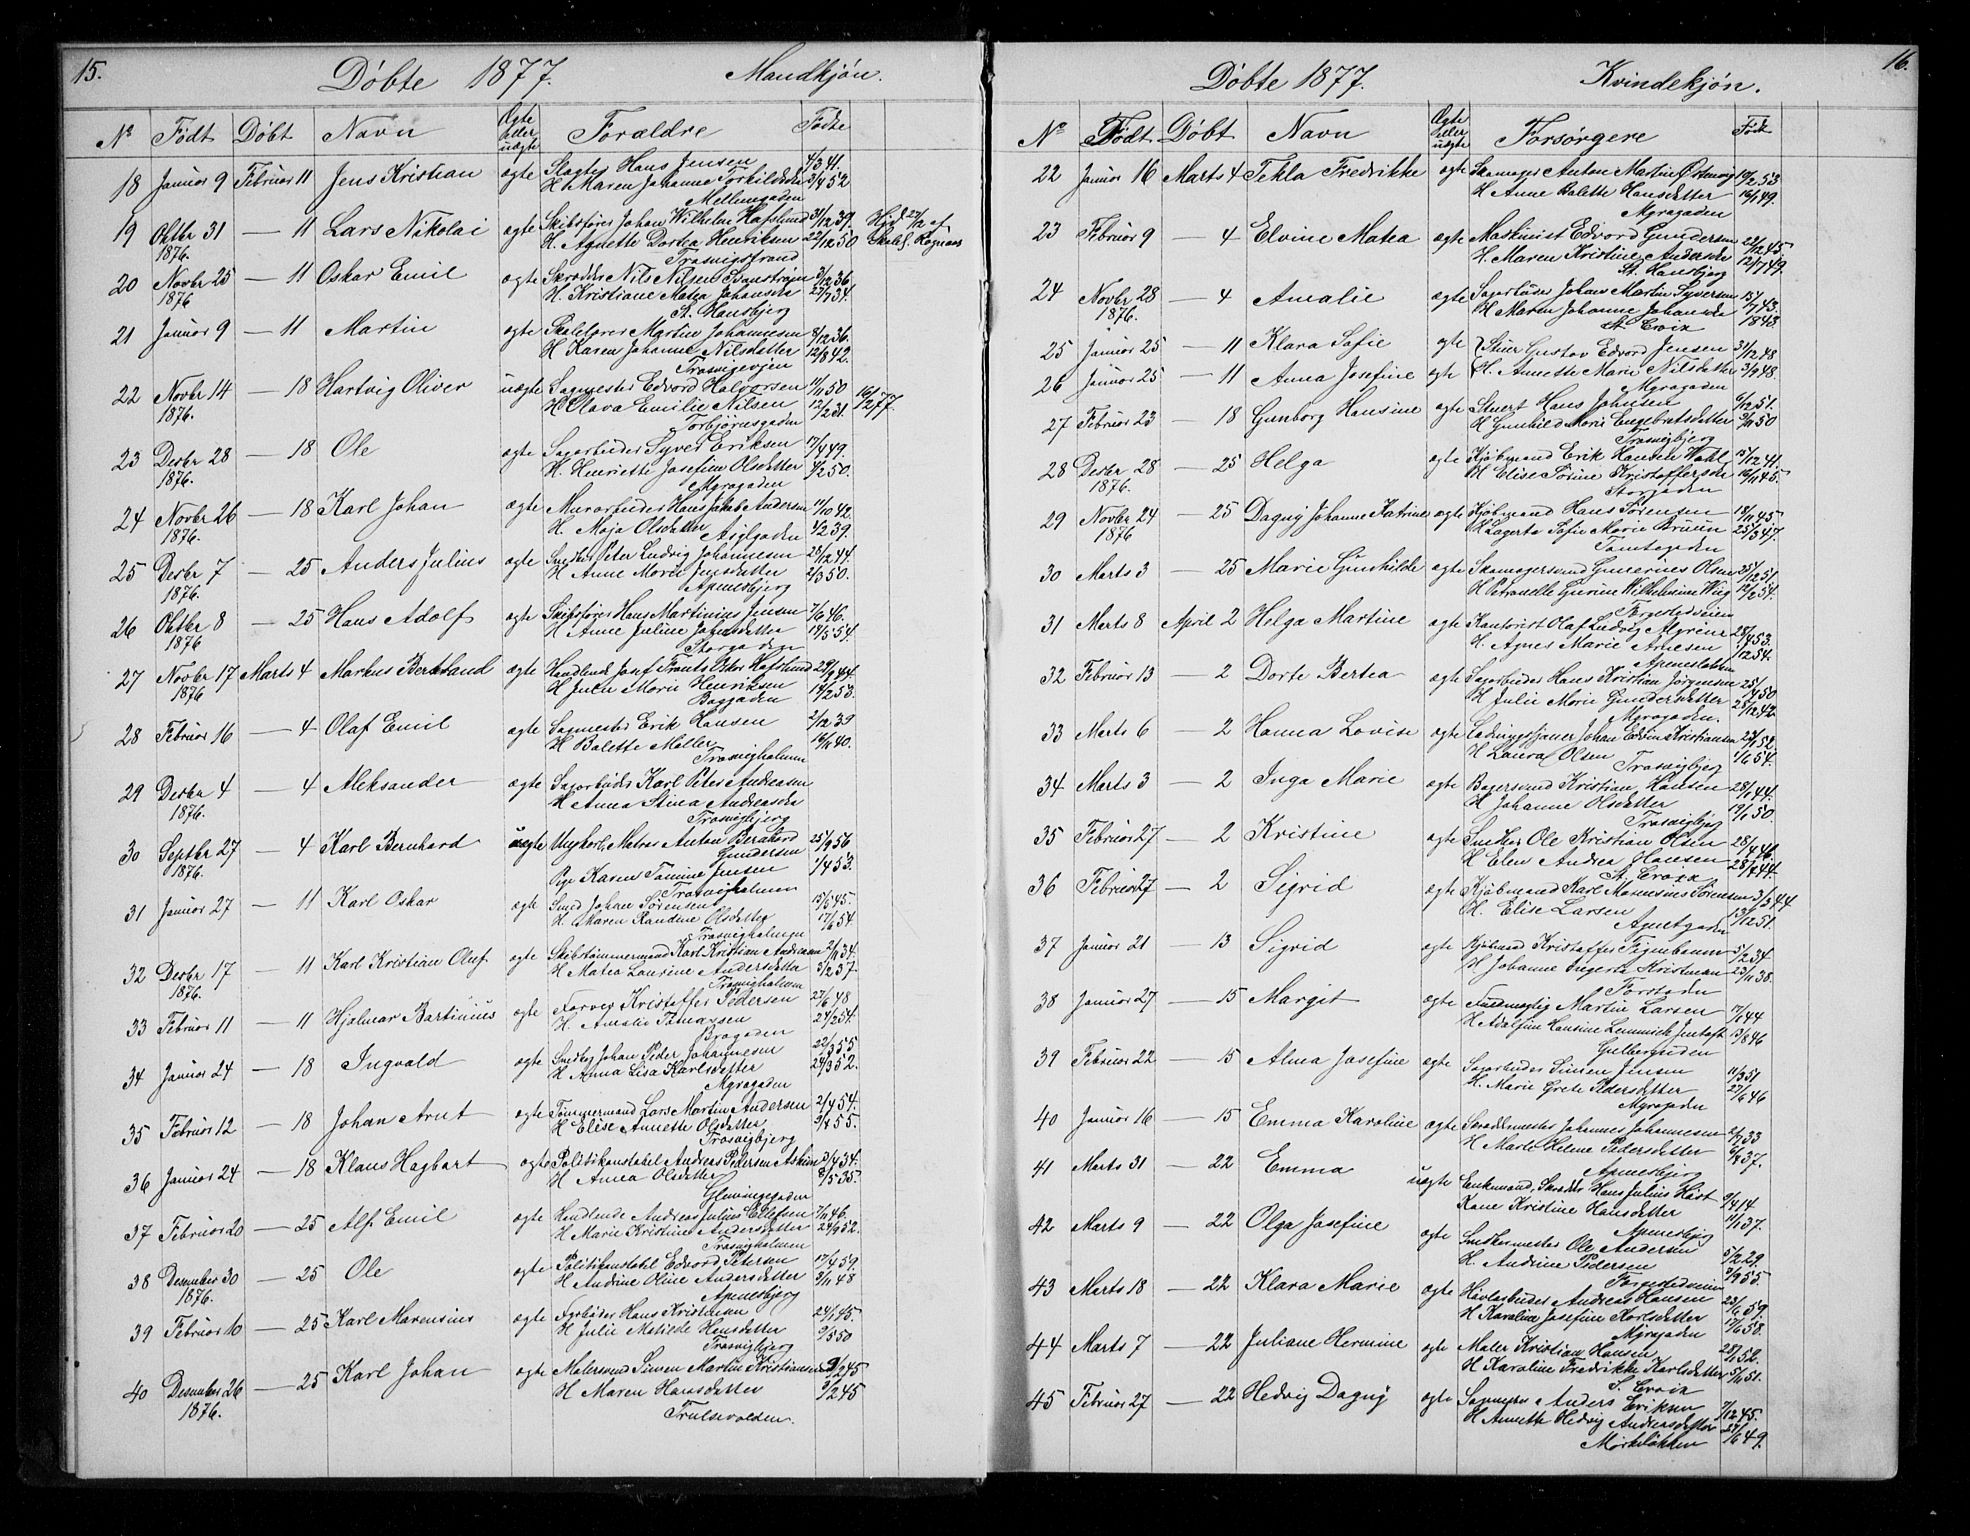 15.
Døbte 1877. Mandkjøn.
No Født Døbt Navn Ægte eller uægte Forældre Fødte
18 Januar 9 Februar 11 Jens Kristian ægte Slagter Hans Jensen 4/3 41.
H. Maren Johanne Torkildsdtr 3/4 52
Mellemgaden
19 Oktbr 31 — 11 Lars Nikolai ægte Skibsfører Johan Wilhelm Hafslund 31/12 39.
1876. H. Agnette Dortea Henriksen 22/12 50
Trosvigstrand
20 Novbr 25 — 11 Oskar Emil ægte Skrædder Nils Nilsen
1876 H. Kristiane Matea Johansdtr 27/7 34.
St. Hansbjerg
21 Januar 9 — 11 Martin ægte Martin Johannesen 8/12 36.
H Karen Johanne Nilsdatter 12/8 42.
Trosvigveien
22 Novbr 14 — 18 Hartvig Oliver uægte Sagmester Edvard Halvorsen 11/11 50
1876. H Olava Emilie Nilsen 12/2 31.
Torbjørnsgaden
23 Desbr 28 — 18 Ole ægte Sagarbeider Syver Eriksen 17/4 49.
1876. H. Henriette Josefine Olsdatter 4/2 50.
Myragaden
24 Novbr 26 — 18 Karl Johan ægte Murarbeider Hans Jakob Andersen 11/10 42.
1876. H. Maja Olsdatter 4/2 39.
Asylgaden
25 Desbr 7 — 25 Anders Julius ægte Snedker Peter Ludvig Johannesen 28/12 44.
1876. H Anne Marie Jensdatter 2/3 50.
Apenesbjerg
26 Oktbr 8 — 25 Hans Adolf ægte Skibsfører Hans Martinius Jensen 7/6 46.
1876 H Anne Juline Johansdatter 19/5 54.
Storgaden
27 Novbr 17 Marts 4 Markus Bertrand ægte Handlende Josef Frants Oskar Hafslund
1876 H Julie Marie Henriksen 14/2 53.
Baggaden
28 Februar 16 — 4 Olaf Emil ægte Sagmester Erik Hansen 2/12 39
H Balette Møller 16/11 40.
Trosvigholmen
29 Desbr 4 — 4 Aleksander ægte Sagarbeider Karl Peter Andreasen
1876. H Anna Stina Andreasdtr
Trosvigbjerg
30 Septbr 27 — 4 Karl Bernhard uægte Ungkarl, Matros Anton Bernhard 25/9 56
1876. Gundersen
Pige Karen Tomine Jensen 1/4 53.
Trosvigholmen
31 Januar 27 — 11 Karl Oskar ægte Smed Johan Sørensen 15/6 45.
H. Maren Randine Olsdatter 17/6 54.
Trosvigholmen
32 Desbr 17 — 11 Karl Kristian Oluf ægte Skibstømmermand Karl Kristian Andreasen 2/11 34.
1876. H Matea Laurine Andersdatter 3/2 37.
Trosvigholmen
33 Februar 11 — 11 Hjalmar Bartinius ægte Farver Kristoffer Pedersen 27/6 48
H. Amalie Tomassen 24/2 54.
34 Januar 24 — 18 Ingvald ægte Johan Peder Johannesen 22/3 55
H Anna Lisa Karlsdatter 24/3 52.
Myragaden
35 Februar 12 — 18 Johan Arnt ægte Tømmermand Lars Martin Andersen 2/4 54.
H Elise Annette Olsdatter 9/4 55.
Trosvigbjerg
36 Januar 24 — 18 Klaus Hagbart ægte Politikonstabel Andreas Pedersen Askim 3/4 34.
H Anna Olsdatter 8/5 35.
Glemmingegaden
37 Februar 20 — 25 Alf Emil ægte Handlende Andreas Julius Ellefsen 7/11 46.
H Marie Kristine Andersdatter 24/9 52.
Trosvigholmen
38 Desember 30 — 25 Ole ægte Politikonstabel Edvard Petersen 17/4 59.
1876. H Andrine Oline Andersdatter 3/11 48
Apenesbjerg
39 Februar 10 — 25 Karl Marensius ægte Fyrbøder Hans Kristensen 24/1 45.
H Julie Matilde Hansdatter 9/5 50
Trosvigbjerg
40 Desember 26 — 25 Karl Johan ægte Malersvend Simen Martin Kristiansen 9/2 45
1876. H Maren Hansdatter 9/2 45
Trulsevolden.
16.
Døbte 1877. Kvindekjøn.
No Født Døbt Navn Ægte eller uægte Forsørgere Født
22 Januar 16 Marts 4 Tekla Fredrikke ægte Skomager Anton Martin 10/2 53
H Anne Balette Hansdatter 19/11 49.
Myragaden
23 Februar 9 — 4 Elvine Matea ægte Maskinist Edvard Gundersen 22/12 45.
H. Maren Kristine Andersdtr 12/7 49.
St. Hansbjerg
24 Novbr 28 — 4 Amalie ægte Johan Martin Syversen 15/7 43.
1876. H Maren Johanne Johansdtr 1848.
St. Croix
25 Januar 25 — 11 Klara Sofie ægte Stuer Gustav Edvard Jensen 31/12 48
26 Januar 25 — 11 Anna Josefine ægte H. Annette Marie Nilsdatter 3/9 48.
Myragaden
27 Februar 23 — 18 Gunborg Hansine ægte Stuert Hans Johnsen 6/12 51.
H Gunhild Marie Engebretsdatter 9/11 50
Trosvigbjerg
28 Desbr 28 — 25 Helga ægte Kjøbmand Erik Hansen Wahl 15/12 41.
1876. H Elise Torine Kristoffersdtr 19/11 45.
Storgaden
29 Novbr 24 — 25 Dagny Johanne Katrine ægte Kjøbmand Hans Sørensen 18/11 45.
1876 H Lagerta Sofie Marie Bruun 25/3 47.
Tomtegaden
30 Marts 3 — 25 Marie Gunhilde ægte Skomagersvend Gunerius Olsen 25/12 51.
H Petronelle Gurine Wilhelmine Wiig 12/2 54.
Torgestedveien
31 Marts 8 April 2 Helga Martine ægte Kontorist Olaf Ludvig Myrene 28/4 53.
H. Agnes Marie Arnesen 1/12 54.
Apenessletten
32 Februar 13 — 2 Dorte Bertea ægte Sagarbeider Hans Kristian Jørgensen 25/1 50
H Julie Marie Gundersdatter 28/12 42.
Myragaden.
33 Marts 6 — 2 Hanna Lovise ægte Johan Edvin Kristiansen 23/1 52.
H Laura Olsen 4/6 54.
Trosvigbjerg
34 Marts 3 — 2 Inga Marie ægte Bagersvend Kristian Hansen 28/1 44.
H Johanne Olsdatter 19/1 50.
Trosvigbjerg
35 Februar 27 — 2 Kristine ægte Snedker Ole Kristian Olsen 28/4 46.
H Elen Andrea Hansen 28/7 44.
St. Croix
36 Februar 27 — 2 Sigrid ægte Kjøbmand Karl Marensius Sørensen 3/3 44
H. Elise Larsen 13/12 51.
Apnetgaden
37 Januar 21 — 13 Sigrid ægte Kjøbmand Kristoffer Figenbaum 5/2 34.
H Johanne Ingertz Kristman 23/11 38.
Forstaden
38 Januar 27 — 15 Margit ægte Fuldmægtig Martin Larsen 17/1 44
H Adolfine Hansine Lemmich Jentoft 13/8 46
Gulbergsiden
39 Februar 22 — 15 Alma Josefine ægte Sagarbeider Simen Jensen 11/3 51
H. Marie Grete Pedersdatter 27/6 46
Myragaden
40 Januar 16 — 15 Emma Karoline ægte Johannes Johannesen 2/7 33
H Marte Helene Pedersdatter 6/4 37.
Apenesbjerg
41 Marts 31 — 22 Emma uægte Enkemand, Skrædder Hans Julius Høst 9/4 14.
Kone Kristine Hansdatter 11/1 37.
Apenesbjerg
42 Marts 9 — 22 Olga Josefine ægte Snedkermester Ole Andersen 5/2 29.
H. Andrine Pedersen 2/9 55.
Torgestedveien
43 Marts 18 — 22 Klara Marie ægte Høvlarbeider Andreas Hansen 23/6 59.
H Karoline Josefine Karlsdatter 17/6 58.
Myragaden
44 Marts 7 — 22 Juliane Hermine ægte Maler Kristian Hansen 28/1 52.
H Karoline Fredrikke Karlsdatter 5/11 51.
S. Croix
45 Februar 27 — 22 Hedvig Dagny ægte Sagmester Anders Eriksen 7/12 45.
H Annette Hedvig Andersdatter 27/6 49.
Mørkeløkken